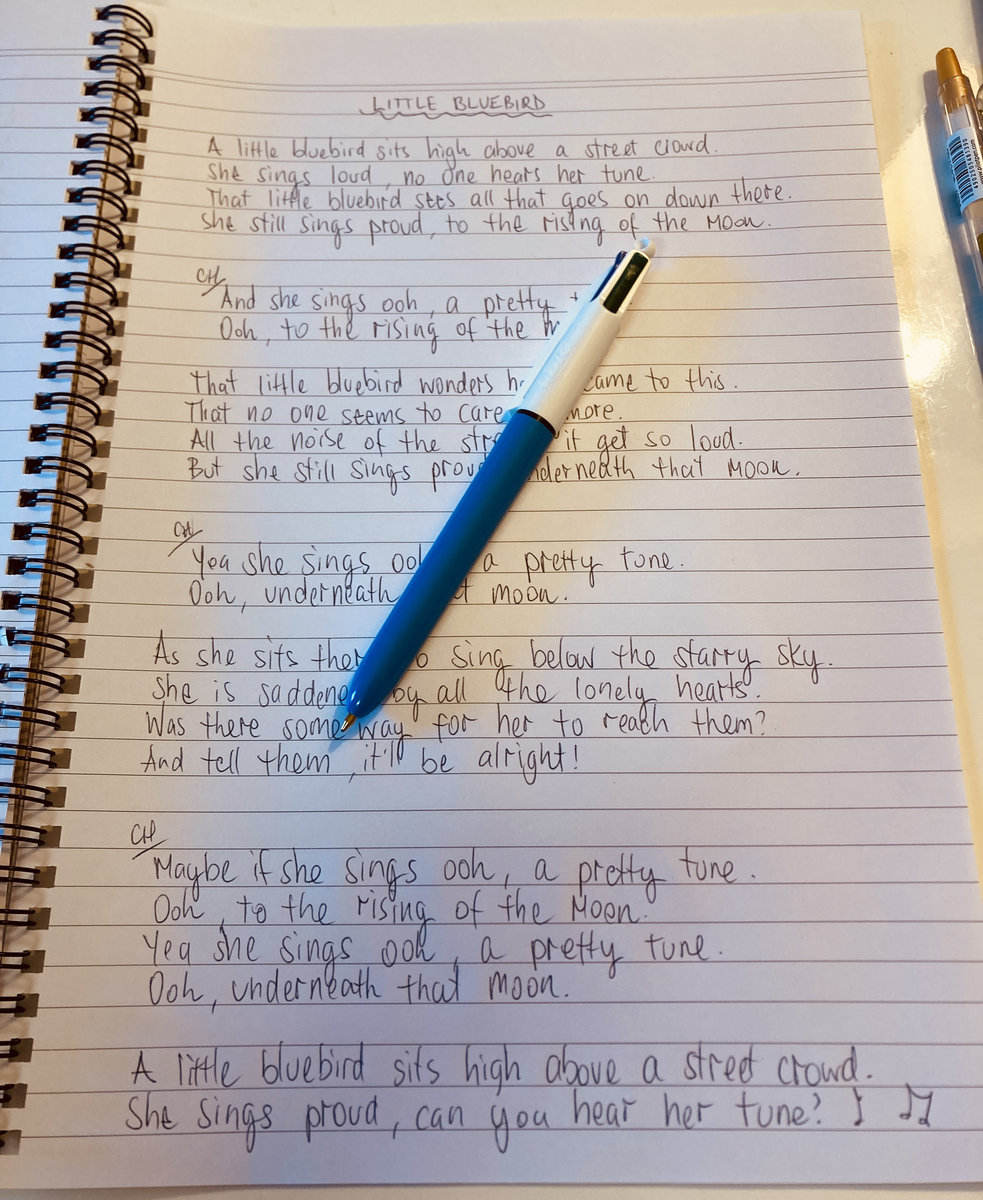 LITTLE BLUEBIRD
A little bluebird sits high above a street crowd.
She sings loud, no one hears her tune.
That little bluebird sees all that goes on down there.
She still sings proud, to the rising of the Moon.
CH
And she sings ooh, a pretty
Ooh, to the rising of the
That little bluebird wonders came to this.
That no one seems to care more.
All the noise of the it get so loud.
But she still sings underneath that Moon.
CH
Yea she sings ooh a pretty tune.
Ooh, underneath moon.
As she sits sing below the starry sky.
She is by all the lonely hearts.
Was there some way for her to reach them?
And tell them, it'll be alright!
CH
Maybe if she sings ooh, a pretty tune.
Ooh, to the rising of the Moon.
Yea she sings ooh, a pretty tune.
Ooh, underneath that moon.
A little bluebird sits high above a street crowd.
She sings proud, can you hear her tune?